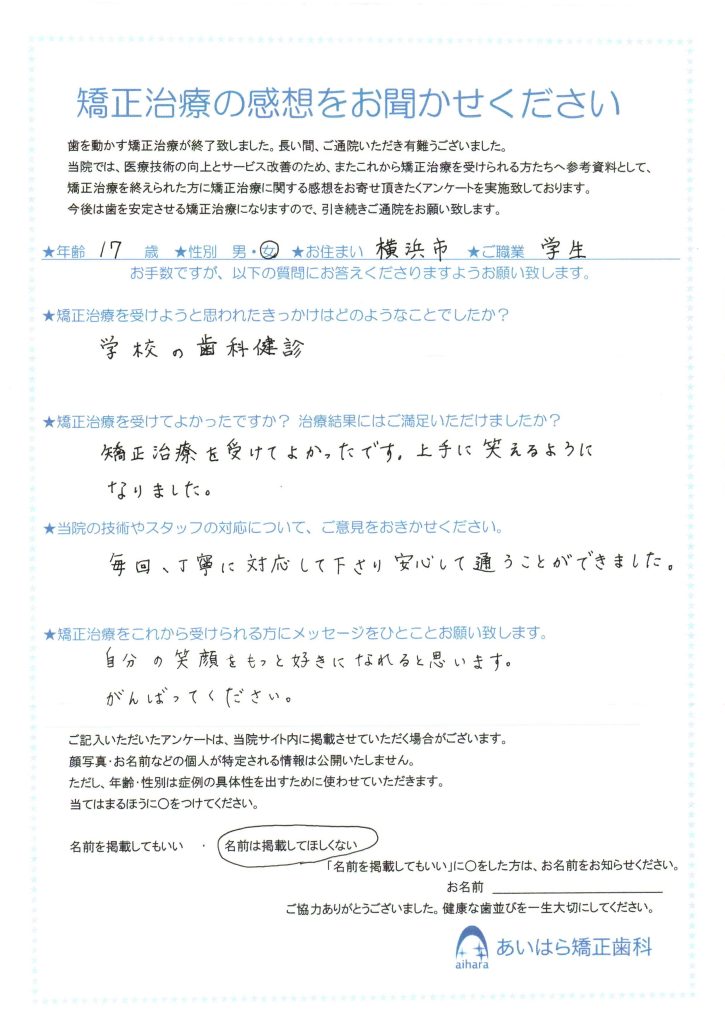 矯正治療の感想をお聞かせください
歯を動かす矯正治療が終了致しました。長い間、ご通院いただき有難うございました。
当院では、医療技術の向上とサービス改善のため、またこれから矯正治療を受けられる方たちへ参考資料として、
矯正治療を終えられた方に矯正治療に関する感想をお寄せ頂きたくアンケートを実施致しております。
今後は歯を安定させる矯正治療になりますので、引き続きご通院をお願い致します。
★年齢 17 歳 ★性別 男・女 ★お住まい 横浜市 ★ご職業 学生
お手数ですが、以下の質問にお答えくださりますようお願い致します。
★矯正治療を受けようと思われたきっかけはどのようなことでしたか？
学校の歯科健診
★矯正治療を受けてよかったですか？ 治療結果にはご満足いただけましたか？
矯正治療を受けてよかったです。上手に笑えるように
なりました。
★当院の技術やスタッフの対応について、ご意見をおきかせください。
毎回、丁寧に対応して下さり安心して通うことができました。
★矯正治療をこれから受けられる方にメッセージをひとことお願い致します。
自分の笑顔をもっと好きになれると思います。
がんばってください。
ご記入いただいたアンケートは、当院サイト内に掲載させていただく場合がございます。
顔写真・お名前などの個人が特定される情報は公開いたしません。
ただし、年齢・性別は症例の具体性を出すために使わせていただきます。
当てはまるほうに〇をつけてください。
名前を掲載してもいい ・ 名前は掲載してほしくない
「名前を掲載してもいい」に〇をした方は、お名前をお知らせください。
お名前
ご協力ありがとうございました。健康な歯並びを一生大切にしてください。
aihara あいはら矯正歯科